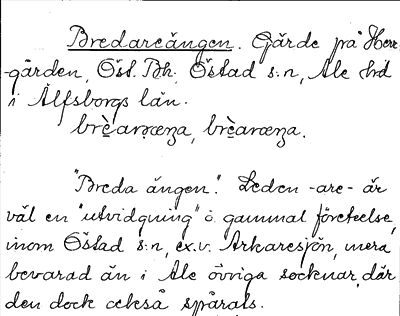 Bredareängen. Gärde på Herr-
gården, Öst. Bh. Östad s:n, Ale hd
i Älfsborgs län.
brè̱arœŋa, brè̱arœŋa.
"Breda ängen". Leden -are- är
väl en "utvidgning" o. gammal företeelse,
inom Östad s:n, ex.v. Arkaresjön, mera
bevarad än i Ale övriga socknar, där
den dock också spårats.